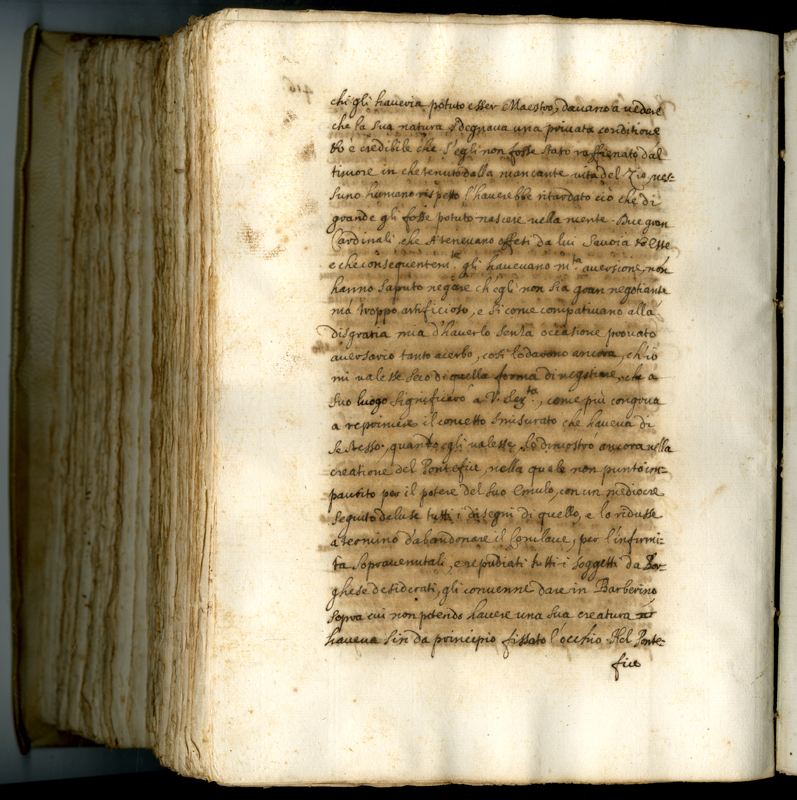 chi gli haveria potuto esser Maestro, davano a vedere
che la sua natura sdegnava una privata conditione
è credibile che s'egli non fosse stato raffrenato dal
timore in che tenuto dalla mancante vita del Zio, nes-
suno humano rispetto l'haverebbe ritardato ciò che di
grande gli fosse potuto nascere nella mente. Due gran
Cardinali che si tenevano offesi da lui Savoia ed Este
e che consequentem.te gli havevano m.ta aversione, non
hanno saputo negare ch'egli non sia gran negotiante
mà troppo artificioso, e si come compativano alla
disgratia mia d'haverlo senza occasione provato
aversario tanto acerbo, così lodavano ancora, ch'io
mi valesse seco di quella forma di negotiare, che a
suo luogo significarò a V. , come più congrua
a reprimere il concetto smisurato che haveva di
se stesso, quando egli valesse lo dimostrò ancora nella
creatione del Pontefice, nella quale non punto im-
paurito per il potere del suo Emulo, con un mediocre
seguito deluse tutti i disegni di quello, e lo ridusse
a termino d'abandonare il Conclave, per l'infirmi-
tà sopravenutali, e repudiati tutti i soggetti da Bor-
ghese desiderati, gli convenne dare in Barberino
sopra cui non potendo havere una sua creatura
haveva sin da principio fissato l'occhio. Nel Ponte-
fice